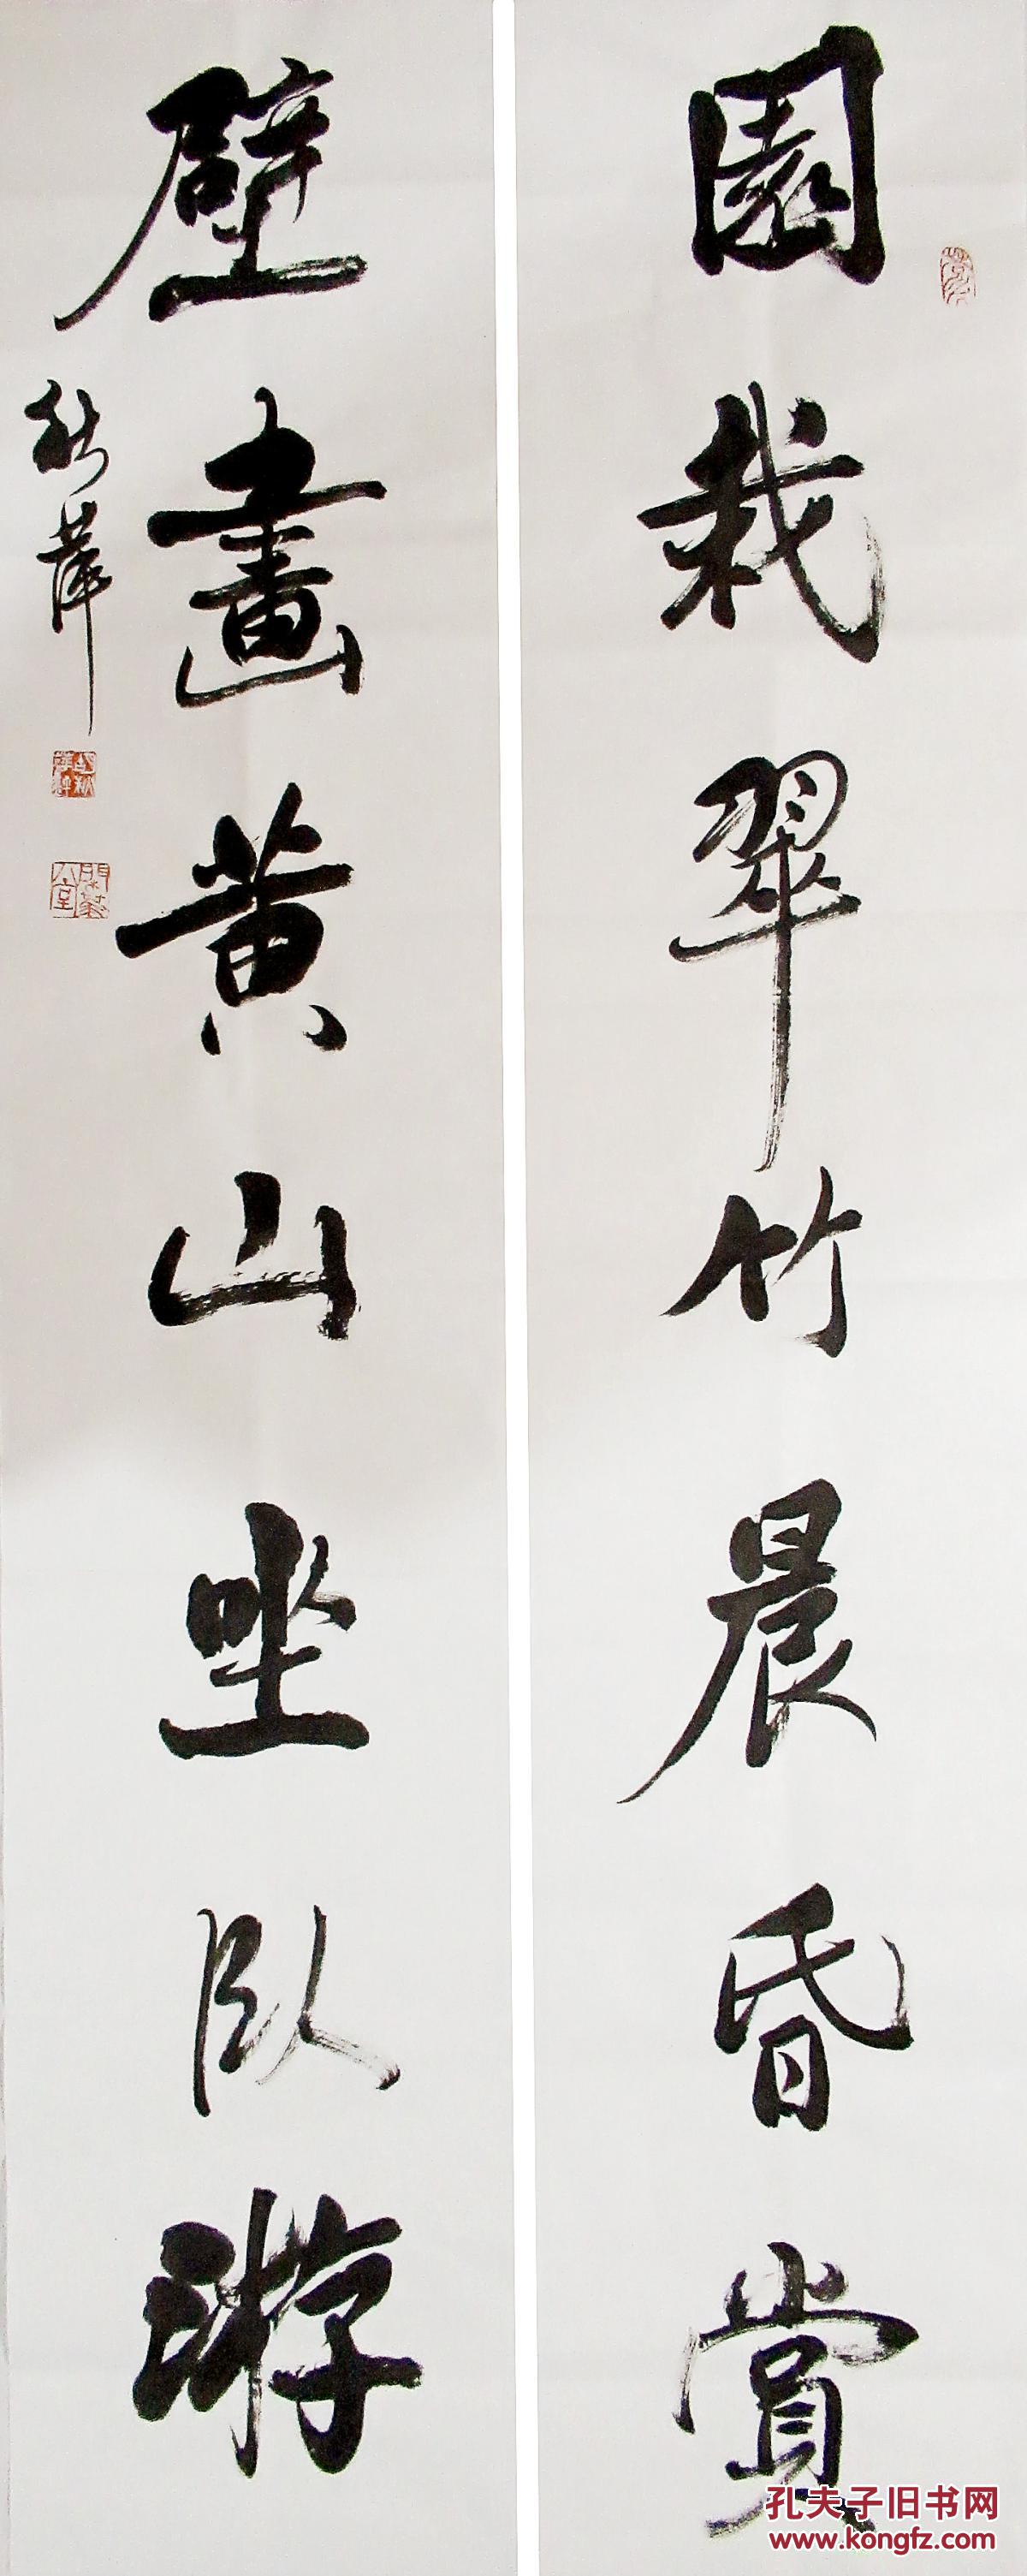 園栽翠竹晨昏賞
壁畫黃山坐臥游
秋萍
孔夫子旧书网
www.kongfz.com